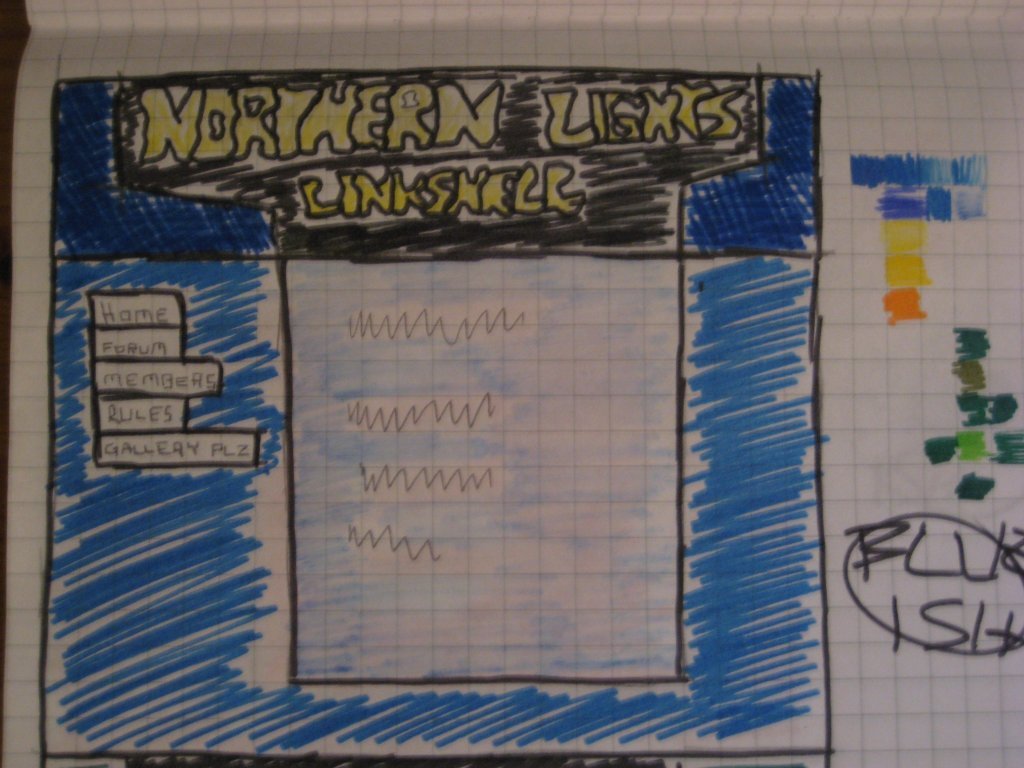 NORTHERN LIGHTS
LINKSHELL
HOME
FORUM
MEMBERS
RULES
GALLERY PLZ